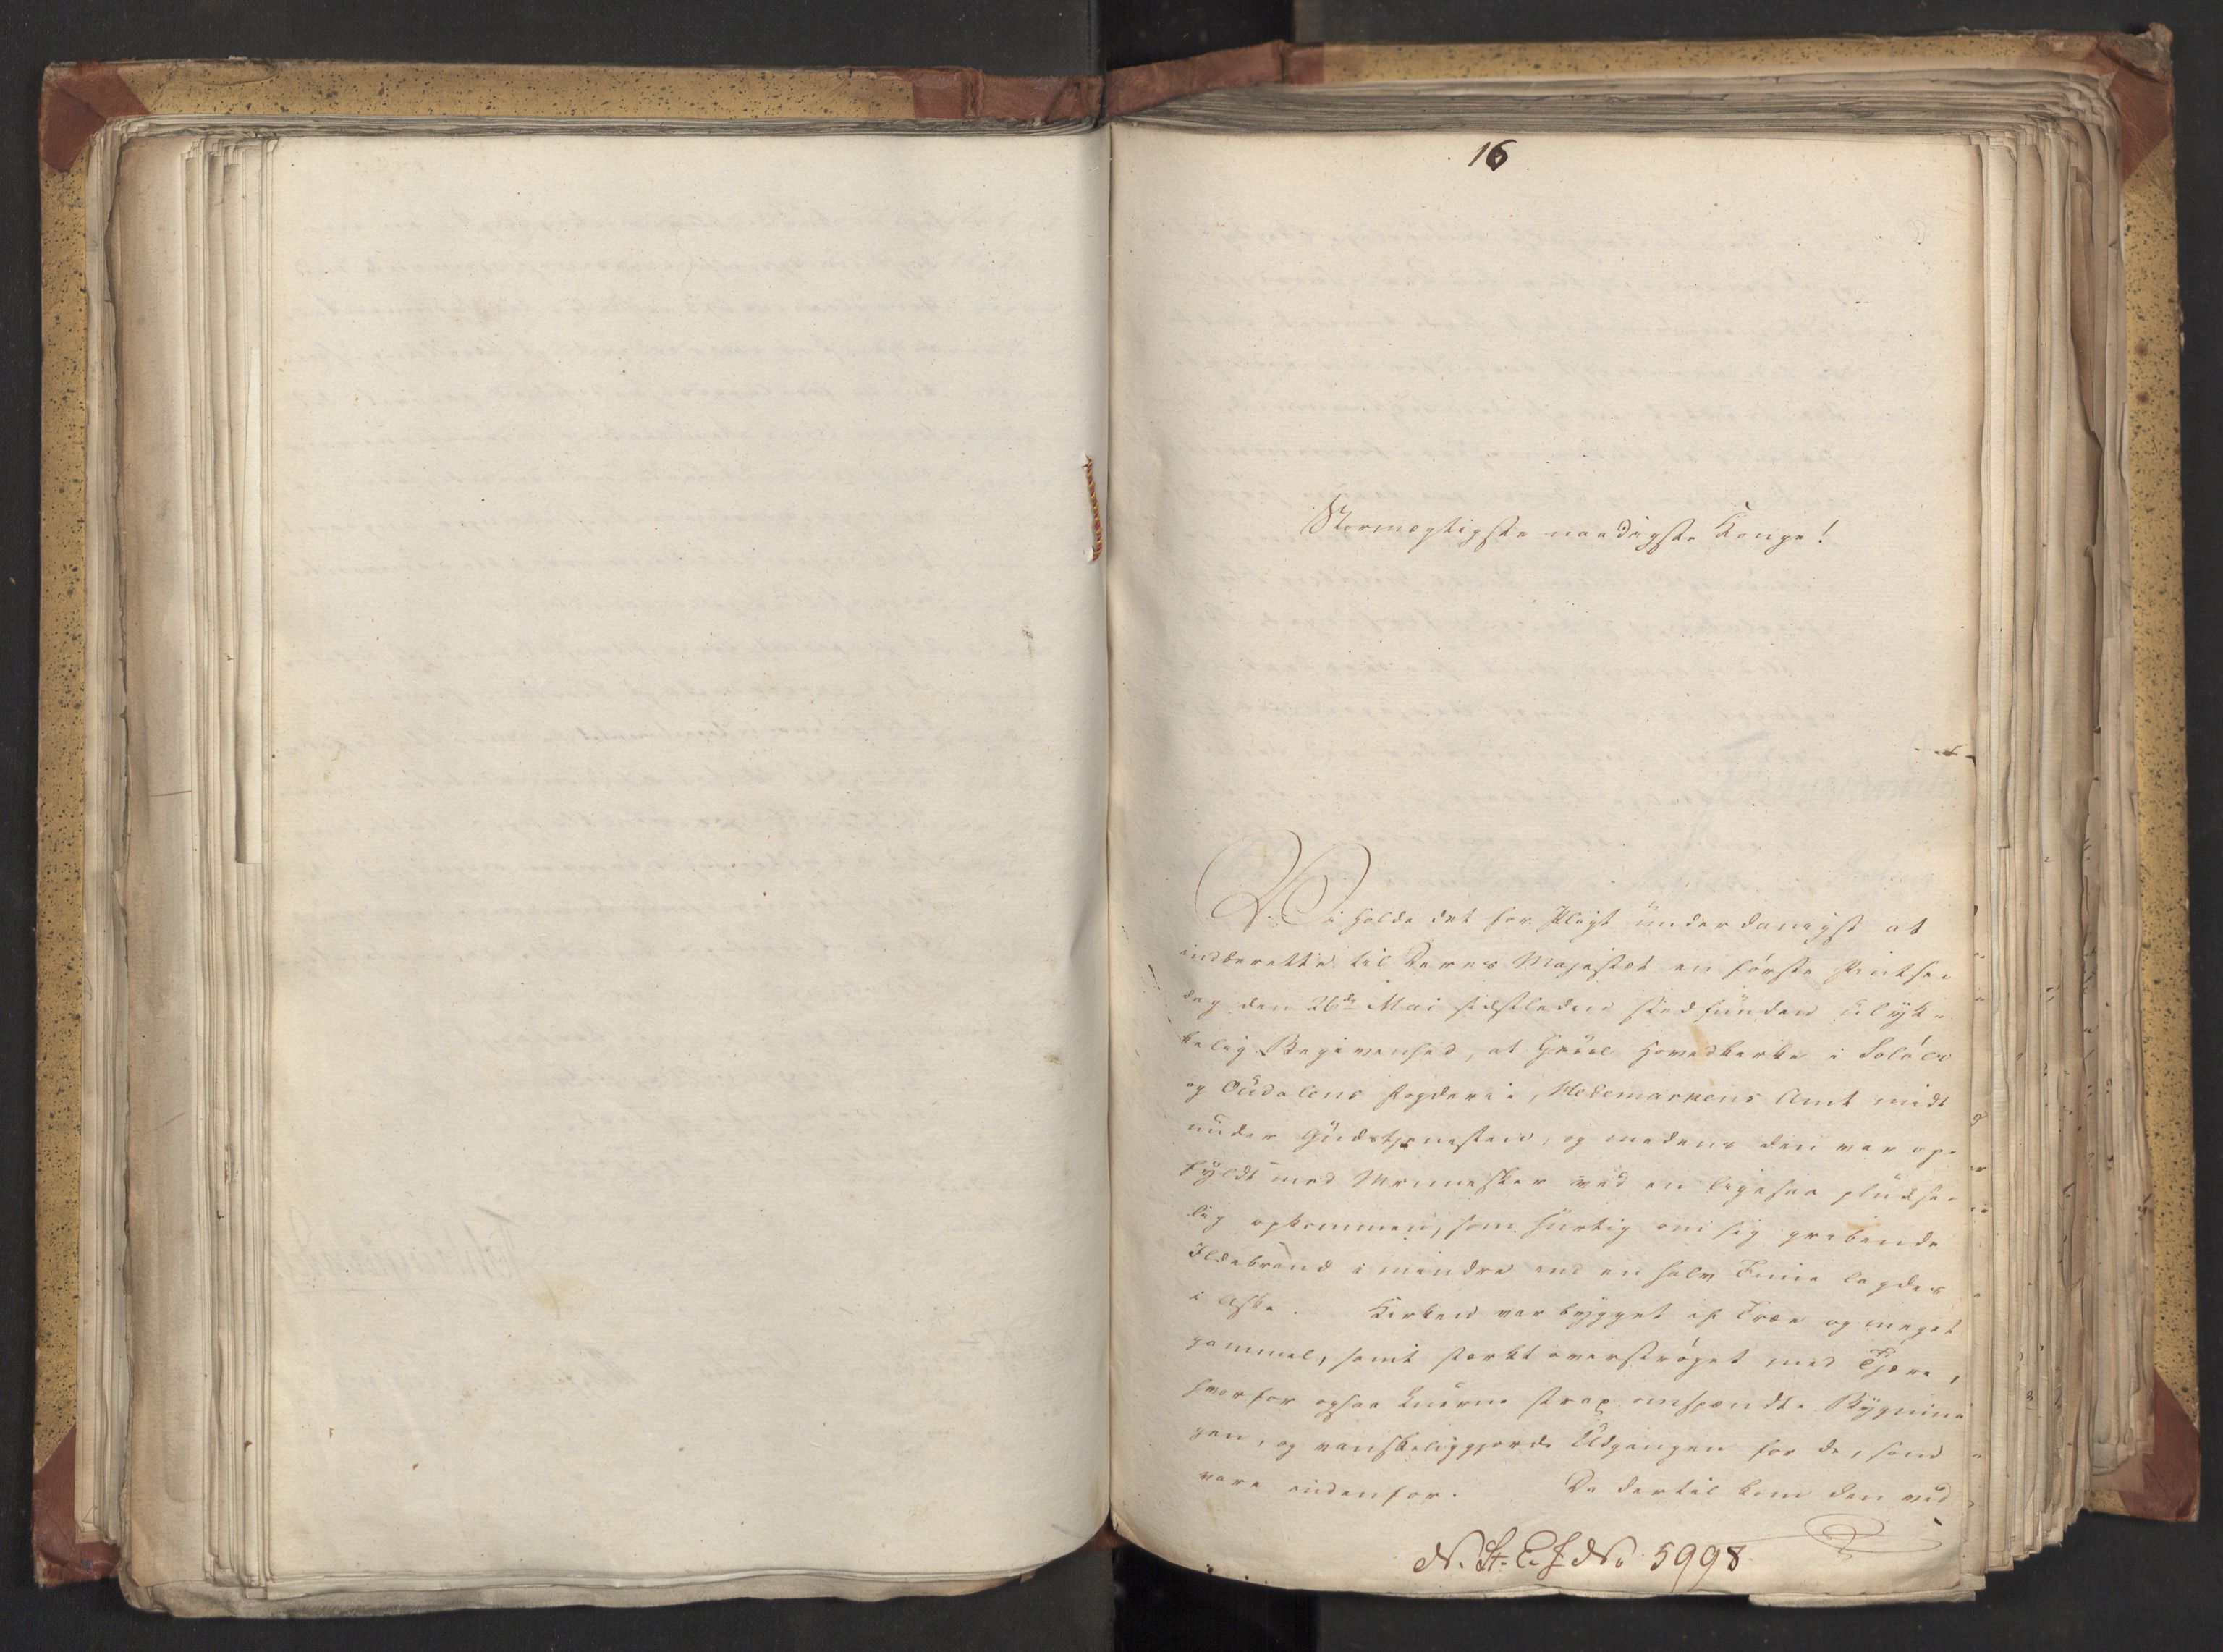 16
Stormægtigste naadigste Konge!
Vi holde det for Pligt underdanigst at
indberette til Deres Majestæt en første Pintse-
dag den 26de Mai sidstleden stedfunden ulyk-
kelig Begivenhed, at Grüe Hovedkirke i Solöers
og Oüdalens Fogderie, Hedemarkens Amt midt
under Gudstjenesten, og medens den var op-
fyldt med Mennesker ved en ligesaa pludse-
lig opkommen, som hurtig om sig gribende
Ildebrand i mindre end en halv Time lagdes
i Aske. Kirken var bygget af Træe og meget
gammel, samt stærkt overstrøget med Tjære,
hvorfor ogsaa Luerne strax omspændte Bygnin-
gen, og vanskeliggjorde Udgangen for de, som
vare indenfor. Da dertil kom den ved
N. St. E. J No 5998